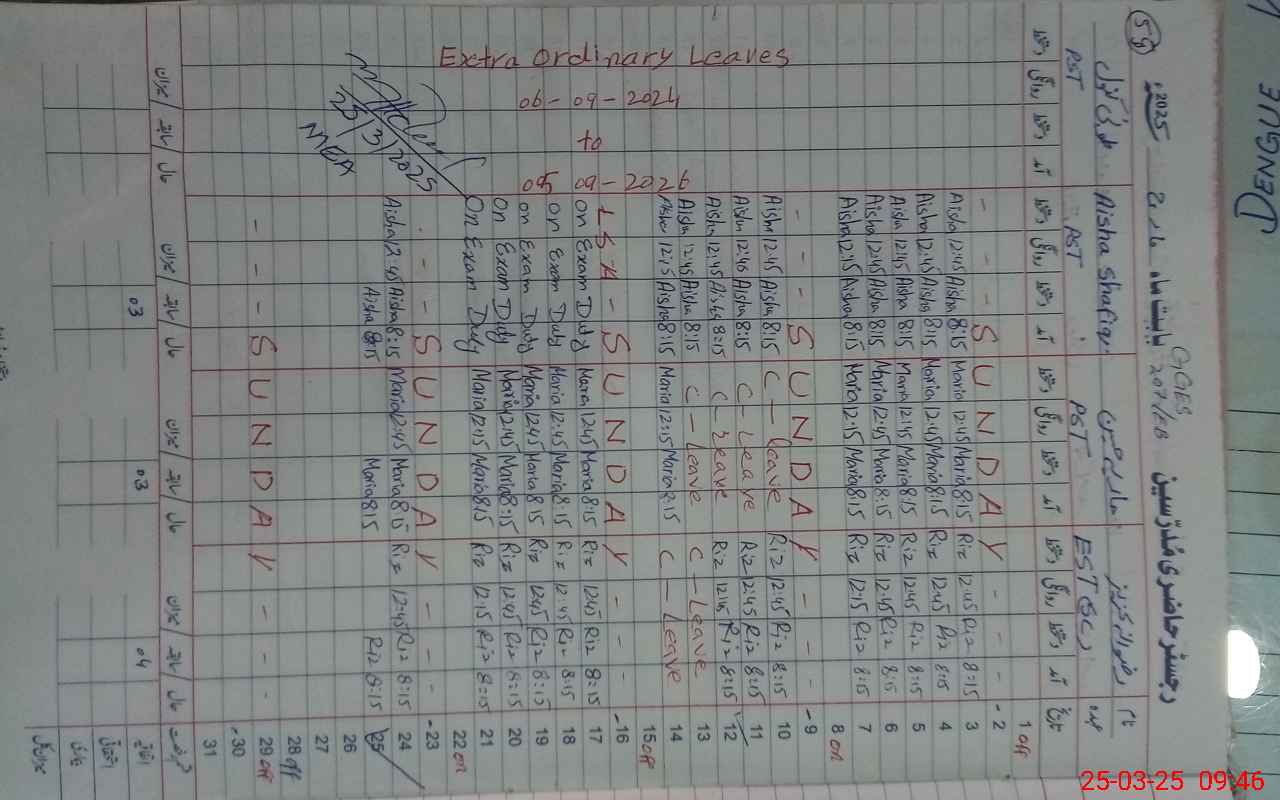 DENGUE
59
رجسٹر حاضری مدرسین GGES 207/EB بابت ماہ مارچ 2025ء
نام Aisha Shafique
عہدہ EST PST PST PST
تاریخ آمد روانگی آمد روانگی آمد روانگی آمد روانگی
1 off
-2 SUNDAY
3 8:15 Riz 12:45 Riz 8:15 Maria 12:45 Maria 8:15 Aisha 12:45 Aisha
4 8:15 Riz 12:45 Riz 8:15 Maria 12:45 Maria 8:15 Aisha 12:45 Aisha
5 8:15 Riz 12:45 Riz 8:15 Maria 12:45 Maria 8:15 Aisha 12:45 Aisha
6 8:15 Riz 12:45 Riz 8:15 Maria 12:45 Maria 8:15 Aisha 12:45 Aisha
7 8:15 Riz 12:15 Riz 8:15 Maria 12:15 Maria 8:15 Aisha 12:15 Aisha
8
-9 SUNDAY
10 8:15 Riz 12:45 Riz C - Leave 8:15 Aisha 12:45 Aisha
11 8:15 Riz 12:45 Riz C - Leave 8:15 Aisha 12:45 Aisha
12 8:15 Riz 12:45 Riz C - Leave 8:15 Aisha 12:45 Aisha
13 C - Leave C - Leave 8:15 Aisha 12:45 Aisha
14 C - Leave 8:15 Maria 12:15 Maria 8:15 Aisha 12:15 Aisha
15 off
-16 SUNDAY
17 8:15 Riz 12:45 Riz 8:15 Maria 12:45 Maria On Exam Duty
18 8:15 Riz 12:45 Riz 8:15 Maria 12:45 Maria On Exam Duty
19 8:15 Riz 12:45 Riz 8:15 Maria 12:45 Maria on Exam Duty
20 8:15 Riz 12:45 Riz 8:15 Maria 12:45 Maria On Exam Duty
21 8:15 Riz 12:15 Riz 8:15 Maria 12:15 Maria On Exam Duty
22
-23 SUNDAY
24 8:15 Riz 12:45 Riz 8:15 Maria 12:45 Maria 8:15 Aisha 12:45 Aisha
25 8:15 Riz 8:15 Maria 8:15 Aisha
26
27
28 off
29 off
-30 SUNDAY
31
Extra Ordinary Leaves
06-09-2024
to
05-09-2026
25/3/2025
MEA
رخصت حال سابقہ میزان حال سابقہ میزان حال سابقہ میزان حال سابقہ میزان
اتفاقیہ 04 03 03
25-03-25 09:46